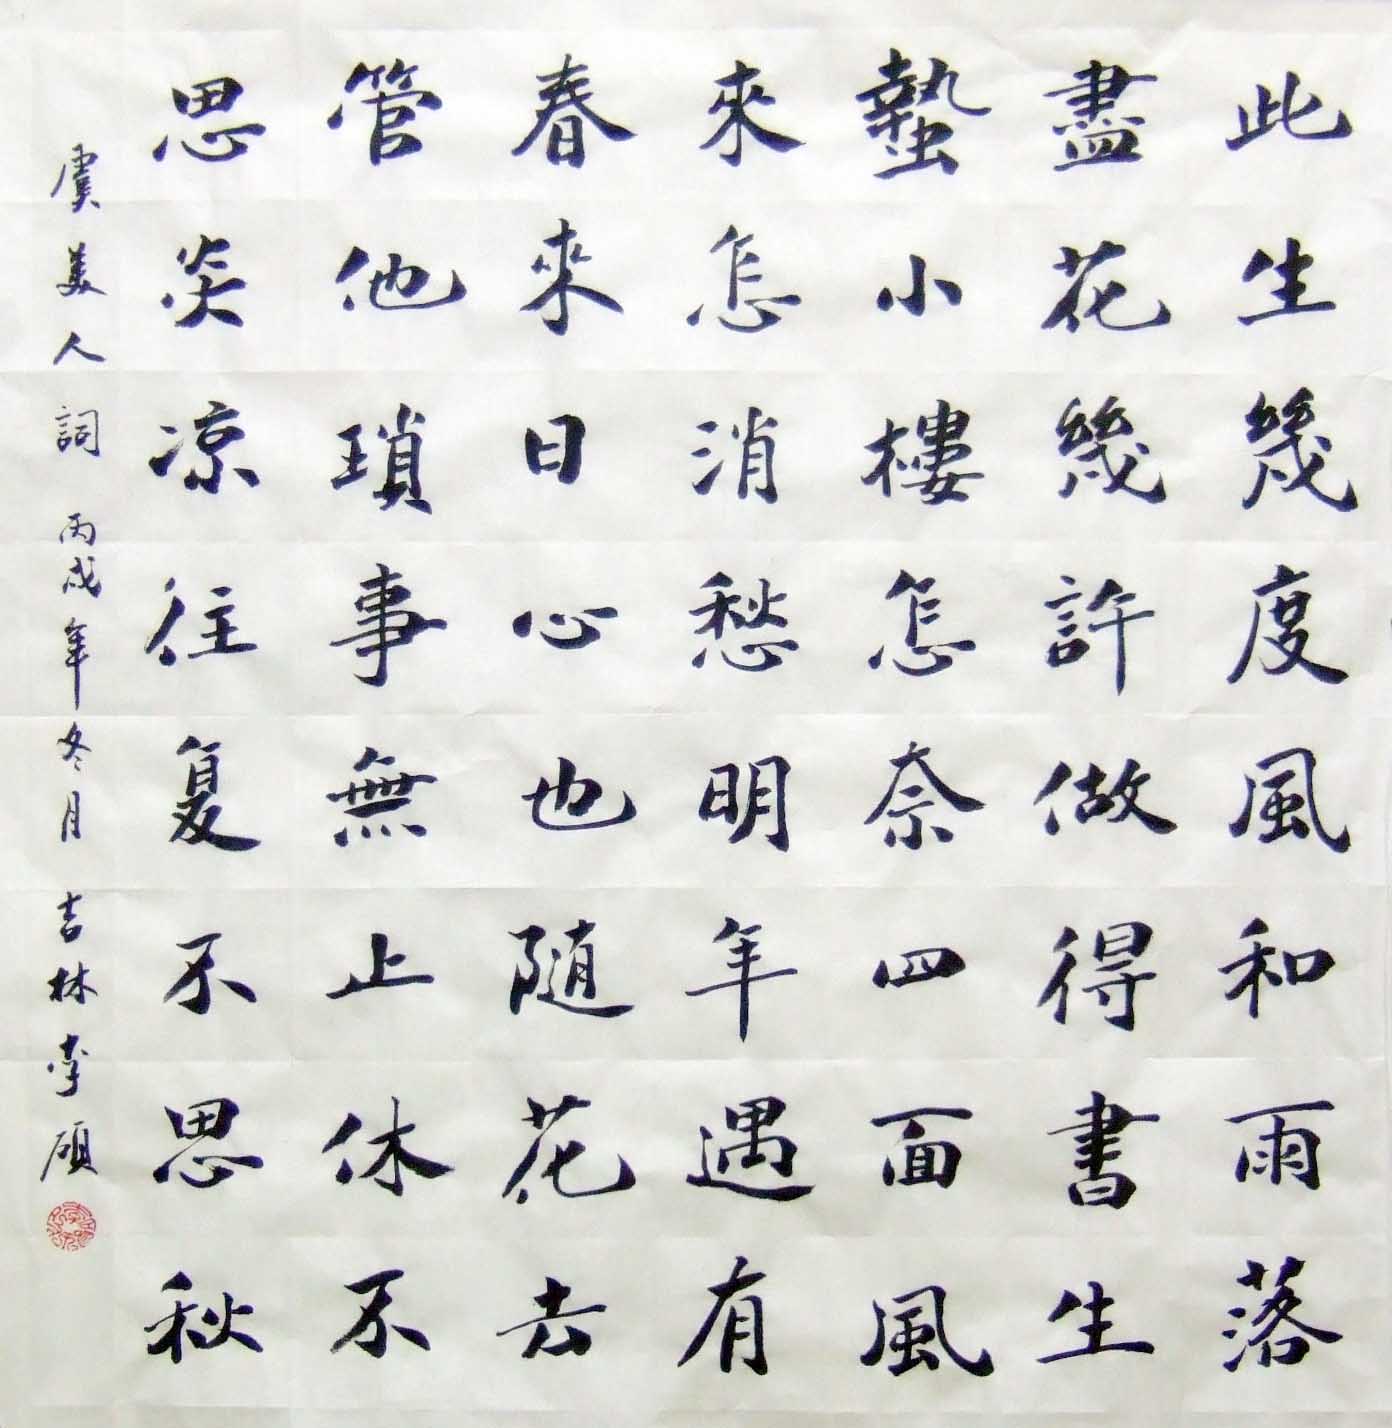 此生幾度風和雨落
盡花幾許做得書生
蟄小樓怎奈四面風
來怎消愁明年遇有
春來日心也随花去
管他瑣事無止休不
思炎凉往复不思秋
虞美人詞 丙戌年冬月 吉林李碩